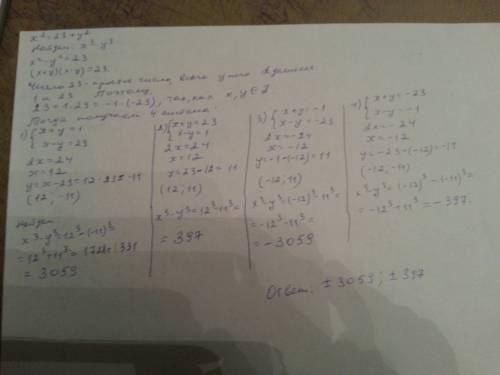 x² = 23 + y²
Найди: x³ - y³
x² - y² = 23
(x+y)(x-y) = 23.
Число 23 - простое число, всего у него 2 делителя
1 и 23. Поэтому,
23 = 1·23 = -1·(-23), так, как x, y ∈ Z
Тогда получаем 4 системы.
1) { x+y = 1
x-y = 23
2x = 24
x = 12
y = x-23 = 12-23 = -11
(12; -11)
Найдём
x³-y³ = 12³-(-11)³ =
= 12³+11³ = 1728+1331
= 3059
2) { x+y = 23
x-y = 1
2x = 24
x = 12
y = 23-12 = 11
(12; 11)
x³-y³ = 12³-11³ =
= 397
3) { x+y = -1
x-y = -23
2x = -24
x = -12
y = -1-(-12) = 11
(-12; 11)
x³-y³ = (-12)³-11³ =
= -12³-11³ =
= -3059
4) { x+y = -23
x-y = -1
2x = -24
x = -12
y = -23-(-12) = -11
(-12; -11)
x³-y³ = (-12)³-(-11)³ =
= -12³+11³ = -397.
Ответ. ±3059; ±397